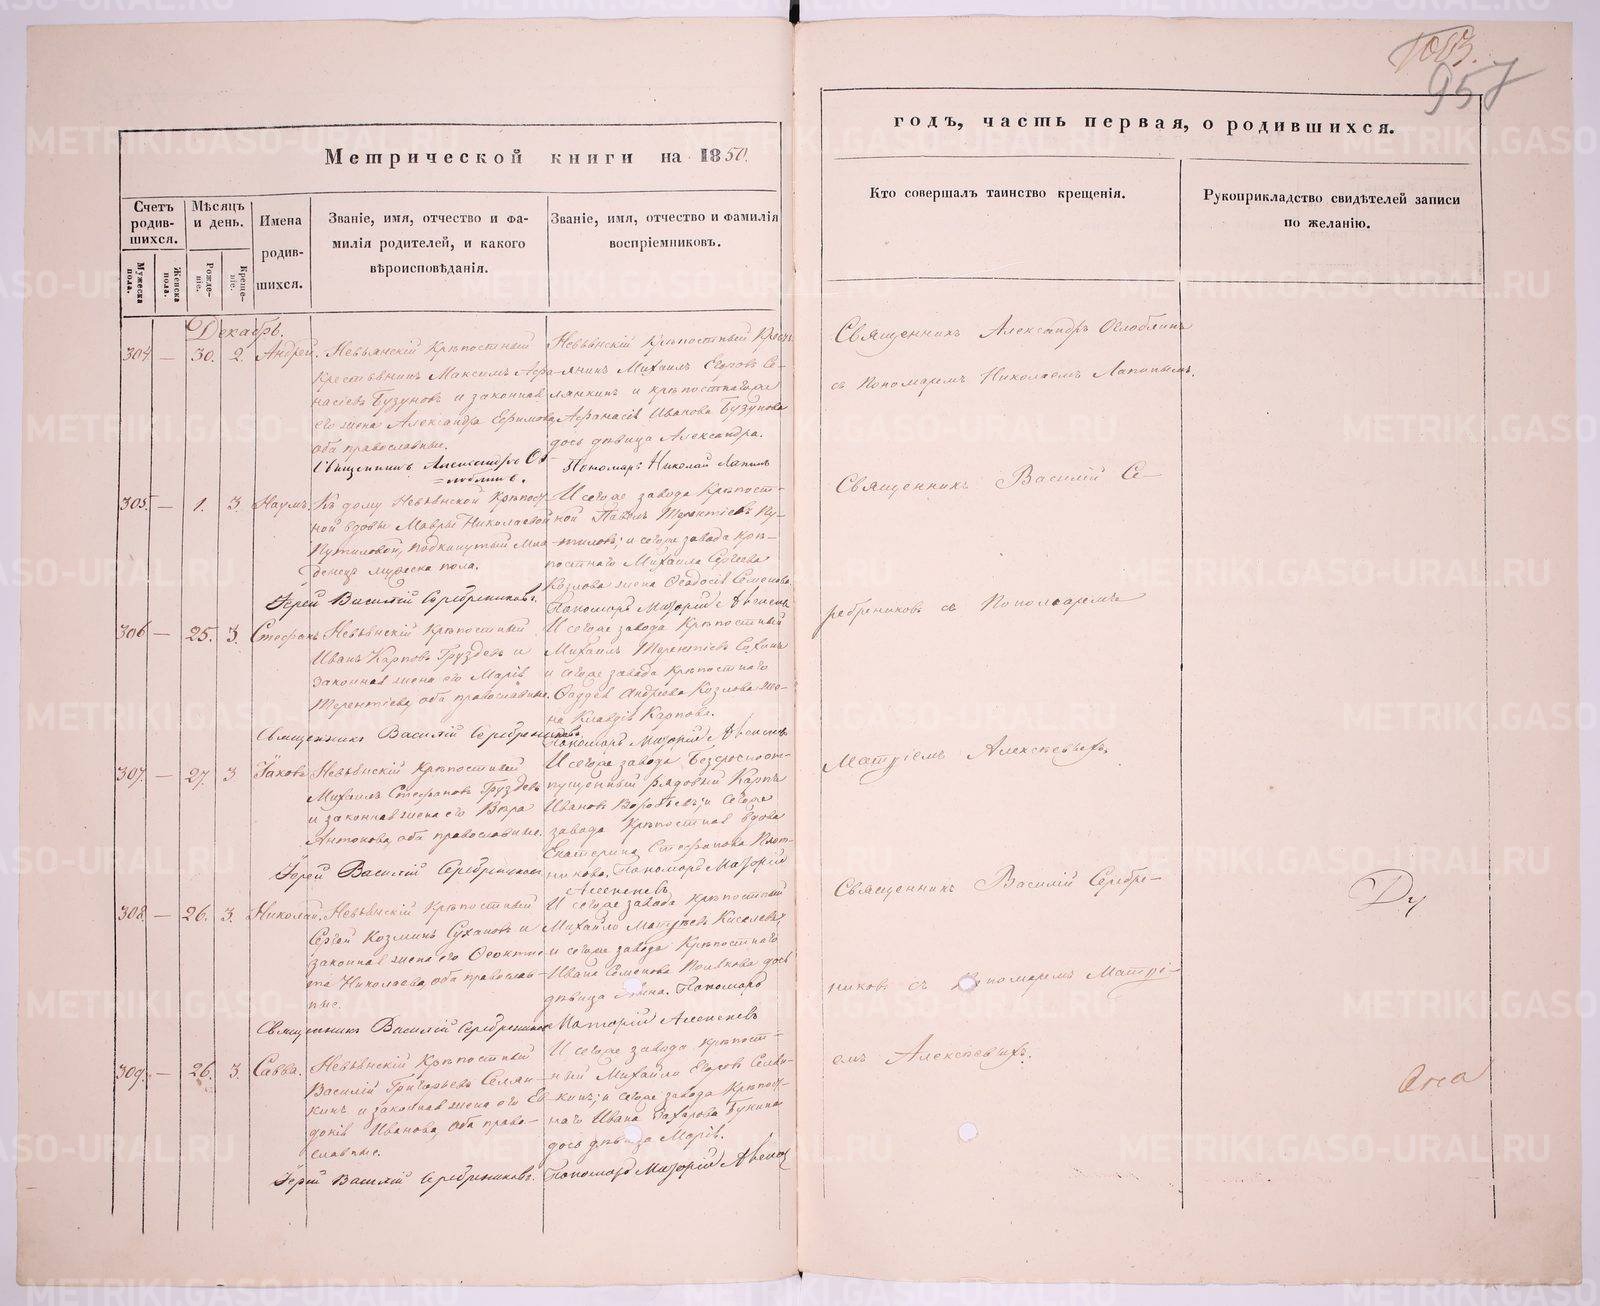 957
Метрической книги на 1850.
годъ, часть первая, о родившихся.
Счетъ родив-шихся.
Мужеска пола.
Женска пола.
Мѣсяцъ и день.
Рожде-ніе.
Креще-ніе.
Имена родив-шихся.
Званіе, имя, отчество и фа-
милія родителей, и какого
вѣроисповѣданія.
Званіе, имя, отчество и фамилія
воспріемниковъ.
Кто совершалъ таинство крещенія.
Рукоприкладство свидѣтелей записи
по желанію.
Декабрь.
304 — 30. 2. Андрей.
Невьянскій Крѣпостный
Крестьянинъ Максимъ Афа-
насіевъ Бузуновъ и законная
его жена Александра Ефимова
оба православные.
Священникъ Александръ Ог-
=лоблинъ.
Невьянскій Крѣпостный Кресть-
янинъ Михаилъ Егоровъ Се-
лянкинъ и крѣпостнаго
Афанасія Иванова Бузунова
дочь дѣвица Александра.
Пономарь Николай Лапинъ
Священникъ Александръ Оглоблинъ
съ Пономаремъ Николаемъ Лапинымъ.
305. — 1. 3. Наумъ.
Къ дому Невьянской Крѣпост-
ной вдовы Мавры Николаевой
Путиловой, подкинутый Мла-
денецъ мужеска пола.
Іерей Василій Серебрениковъ.
И сегоже завода Крѣпост-
ной Павелъ Терентіевъ Пу-
тиловъ; и сегоже завода Крѣ-
постнаго Михаила Сергѣева
Козлова жена Феодосія Семенова.
Пономарь
Священникъ Василій Се-
ребрениковъ съ Пономаремъ
306 — 25. 3. Стефанъ
Невьянскій Крѣпостный
Иванъ Карповъ Груздевъ и
законная жена его Марія
Терентіева, оба православные.
Священникъ Василій Серебрениковъ
И сегоже завода Крѣпостный
Михаилъ Терентіевъ
и сегоже завода Крѣпостнаго
Фаддея Андреева Козлова же-
на Клавдія Карпова.
Пономарь
Матѳіемъ Алексѣевыхъ.
307. — 27. 3 Іаковъ
Невьянскій Крѣпостный
Михаилъ Стефановъ Груздевъ
и законная жена его Вѣра
Антонова, оба православные.
Іерей Василій Серебрениковъ
И сегоже завода Безсрочноот-
пущенный рядовый Карпъ
Ивановъ Воробьевъ; и сегоже
завода Крѣпостная вдова
Екатерина Стефанова Плот-
никова. Пономарь
308. — 26. 3. Николай.
Невьянскій Крѣпостный
Сергей Козминъ Сухановъ и
законная жена его Феоктис-
та Николаева, оба православ-
ные.
Священникъ Василій Серебрениковъ
И сегоже завода Крѣпостный
Михайло Матѳѣевъ Киселевъ;
и сегоже завода Крѣпостнаго
Ивана Семенова Полякова дочь
дѣвица Анна. Пономарь
Священникъ Василій Серебре-
никовъ съ Пономаремъ Матѳі-
емъ Алексѣевыхъ.
Ду
309. — 26. 3. Савва.
Невьянскій Крѣпостный
Василій Григорьевъ Селян-
кинъ и законная жена его Ев-
докія Иванова, оба право-
славные.
Іерей Василій Серебрениковъ.
И сегоже завода Крѣпост-
ный Михайло Егоровъ Селян-
кинъ; и сегоже завода Крѣпост-
наго Ивана Захарова Бунина
дочь дѣвица Марія.
Пономарь
METRIKI.GASO-URAL.RU